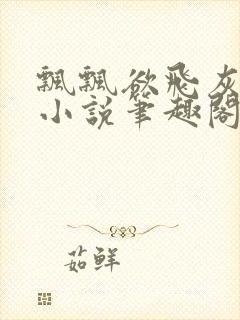 飄飄欲飛灰
小說筆趣閣
茹鮮